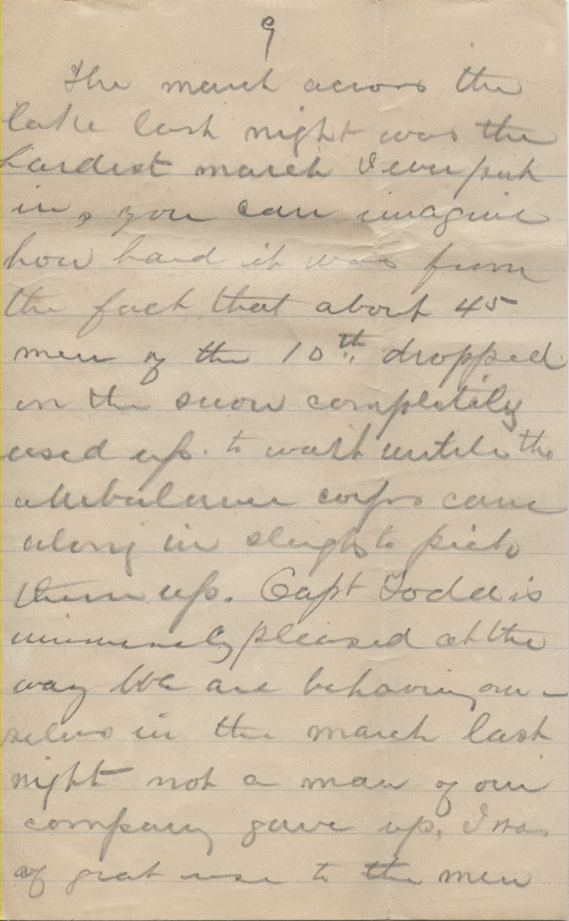 9
The march across the
lake last night was the
hardest march I ever put
in, you can imagine
how hard it was from
the fact that about 45
men of the 10th dropped
on the snow completily
used up. to wait until the
ambulance corps came
along in sleighs to pick
them up. Capt Todd is
immensely pleased at the
way We are behaving our-
selves in the march last
night not a man of our
company gave up. I was
of great use to the men